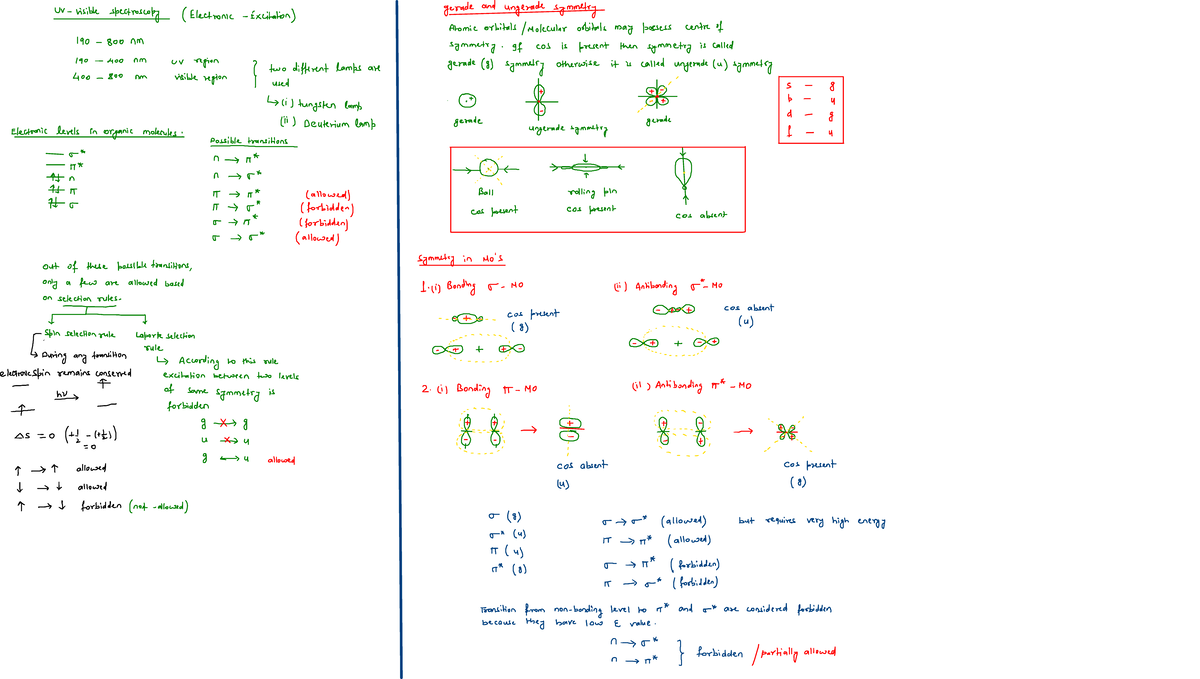 UV-visible spectroscopy (Electronic-Excitation)
190 - 800 nm
190 - 400 nm UV region
400 - 800 nm visible region
two different lamps are
used
↳ (i) tungsten lamp
(ii) Deuterium lamp
Electronic levels in organic molecules.
σ*
π*
n
π
σ
Possible transitions
n → π*
n → σ*
π → π* (allowed)
π → σ* (forbidden)
σ → π* (forbidden)
σ → σ* (allowed)
out of these possible transitions,
only a few are allowed based
on selection rules.
Spin selection rule
↳ During any transition
electronic spin remains conserved
hν
ΔS = 0 (+½ - (+½))
= 0
↑ → ↑ allowed
↓ → ↓ allowed
↑ → ↓ forbidden (not-allowed)
Laporte selection
rule
↳ According to this rule
excitation between two levels
of same symmetry is
forbidden
g ↔ g
u ↔ u
g ↔ u allowed
gerade and ungerade symmetry
Atomic orbitals/Molecular orbitals may possess centre of
symmetry. If cos is present then symmetry is called
gerade (g) symmetry otherwise it is called ungerade (u) symmetry
+
+
-
+
-
+
-
gerade
ungerade symmetry
gerade
s - g
p - u
d - g
f - u
Ball
cos present
rolling pin
cos present
cos absent
Symmetry in MO's
1. (i) Bonding σ - MO
+
cos present
(g)
- + + + -
(ii) Antibonding σ* - MO
- + - +
cos absent
(u)
- + + - +
2. (i) Bonding π - MO
+ +
- -
→
+
-
cos absent
(u)
(ii) Antibonding π* - MO
+ -
- +
→
+ -
- +
cos present
(g)
σ (g)
σ* (u)
π (u)
π* (g)
σ → σ* (allowed) but requires very high energy
π → π* (allowed)
σ → π* (forbidden)
π → σ* (forbidden)
Transition from non-bonding level to π* and σ* are considered forbidden
because they have low ε value.
n → σ*
n → π*
} forbidden /partially allowed